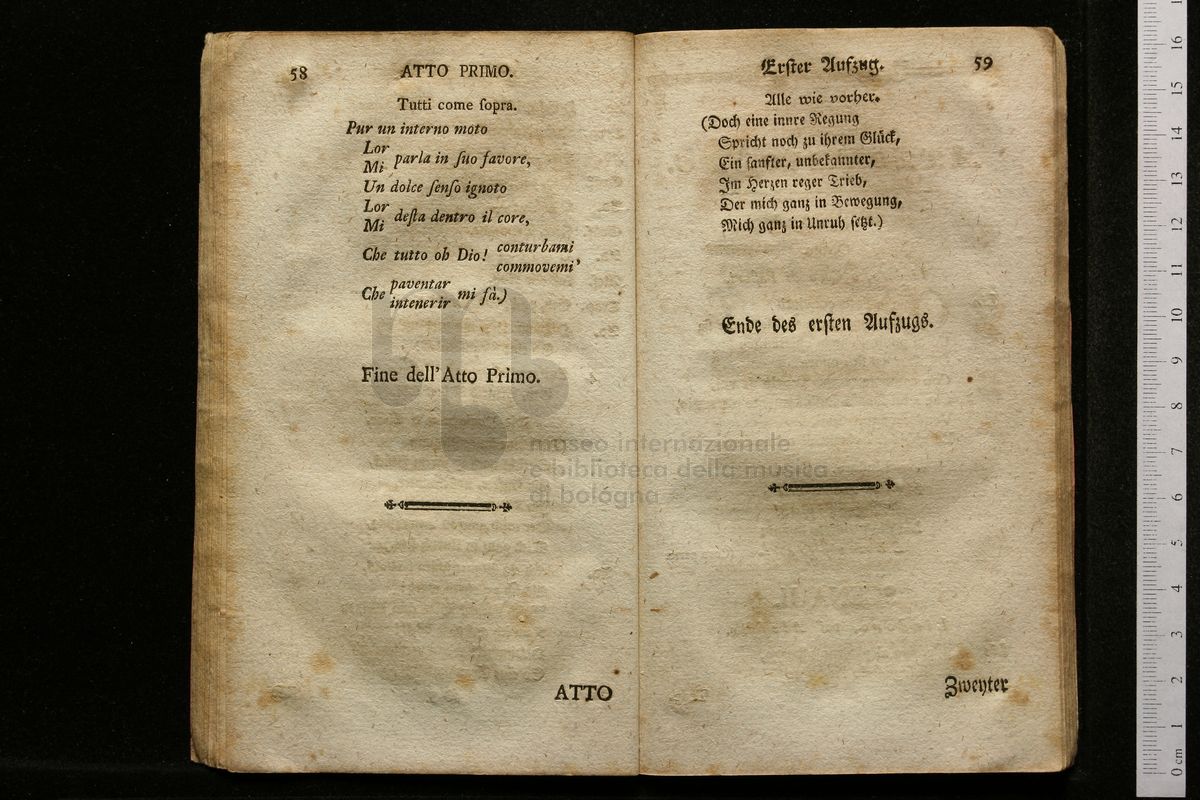 58 ATTO PRIMO.
Tutti come ſopra.
Pur un interno moto
Lor
Mi parla in ſuo favore,
Un dolce ſenſo ignoto
Lor
Mi deſta dentro il core,
Che tutto oh Dio! conturbami
commovemi,
Che paventar
intenerir mi fà.)
Fine dell' Atto Primo.
ATTO
Erſter Aufzug. 59
Alle wie vorher.
(Doch eine innre Regung
Spricht noch zu ihrem Glück,
Ein ſanfter, unbekannter,
Im Herzen reger Trieb,
Der mich ganz in Bewegung,
Mich ganz in Unruh ſetzt.)
Ende des erſten Aufzugs.
Zweyter
museo internazionale
e biblioteca della musica
di bologna
0 cm 1 2 3 4 5 6 7 8 9 10 11 12 13 14 15 16